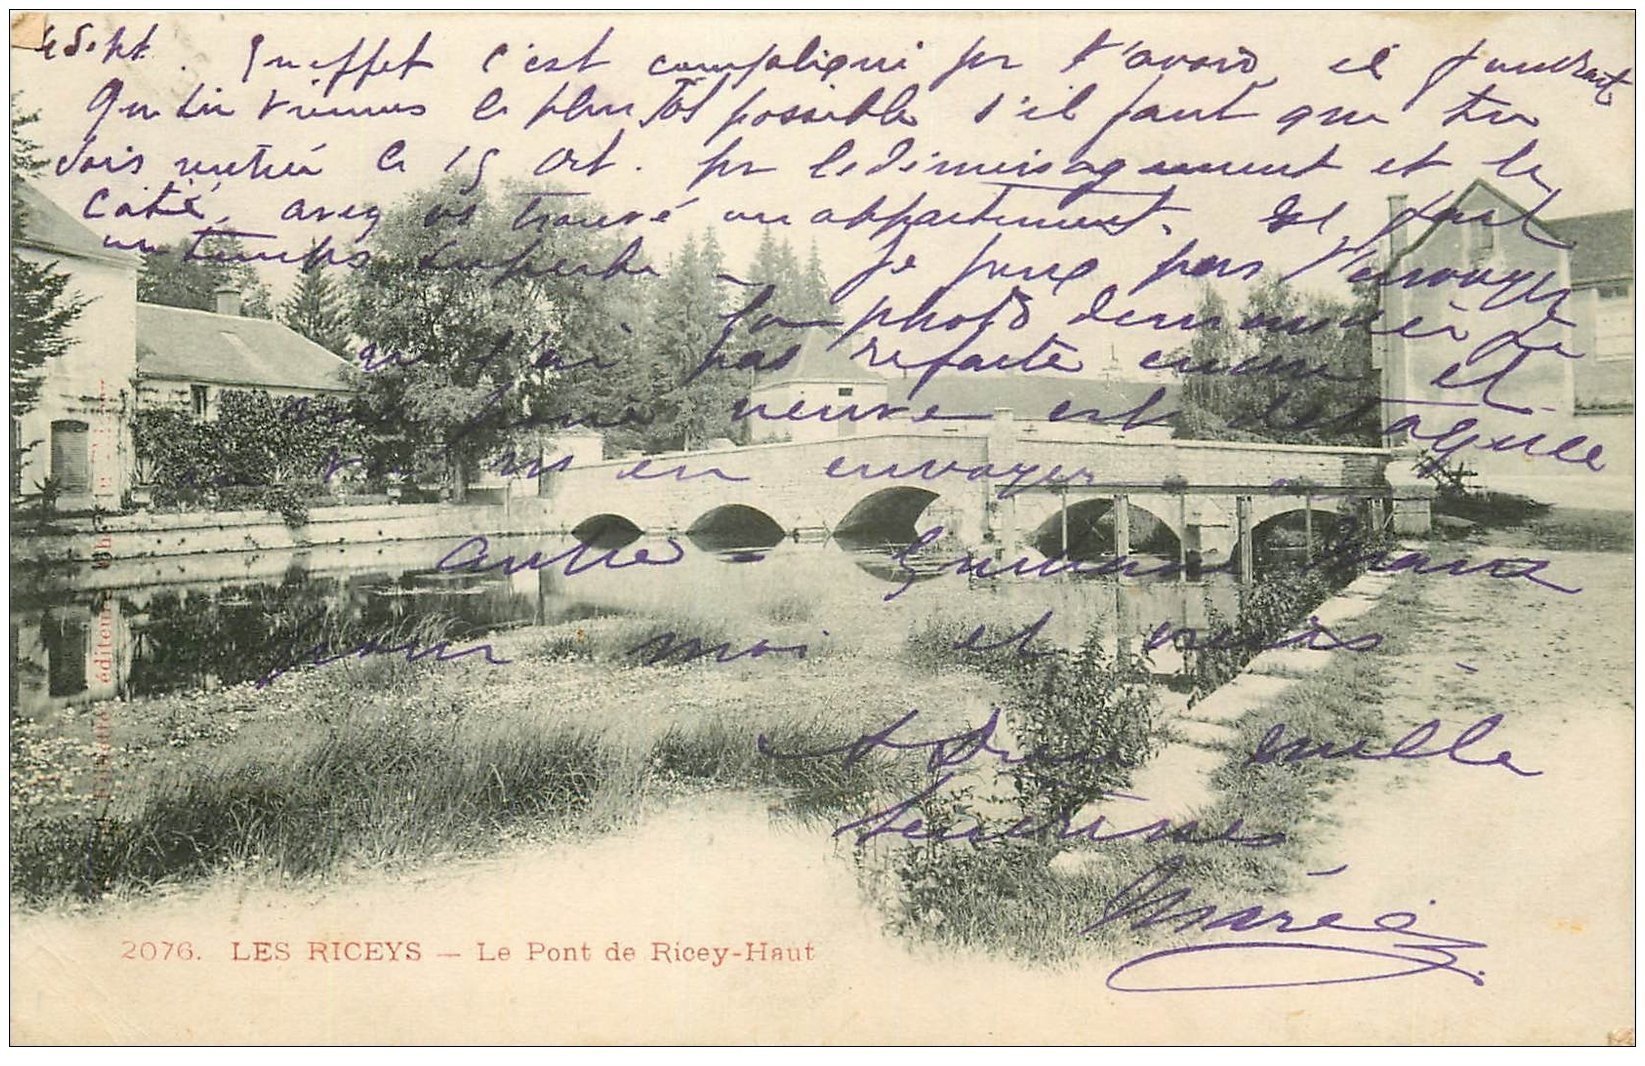 Sept. En effet c'est compliqué pr t'avoir, il faudrait
que tu viennes le plus tôt possible s'il faut que tu
sois rentrée le 15 Oct. pr le déménagement et la
avez vs trouvé un appartement. Il fait
un temps superbe - Je peux pas t'envoyer
la photo demandée je
n'ai pas refaite encore et
neuve est detraquée
en envoyer
autre - Maurs
pour moi et
Adieu mille
tendresses
Marie
éditeur
2076. LES RICEYS — Le Pont de Ricey-Haut